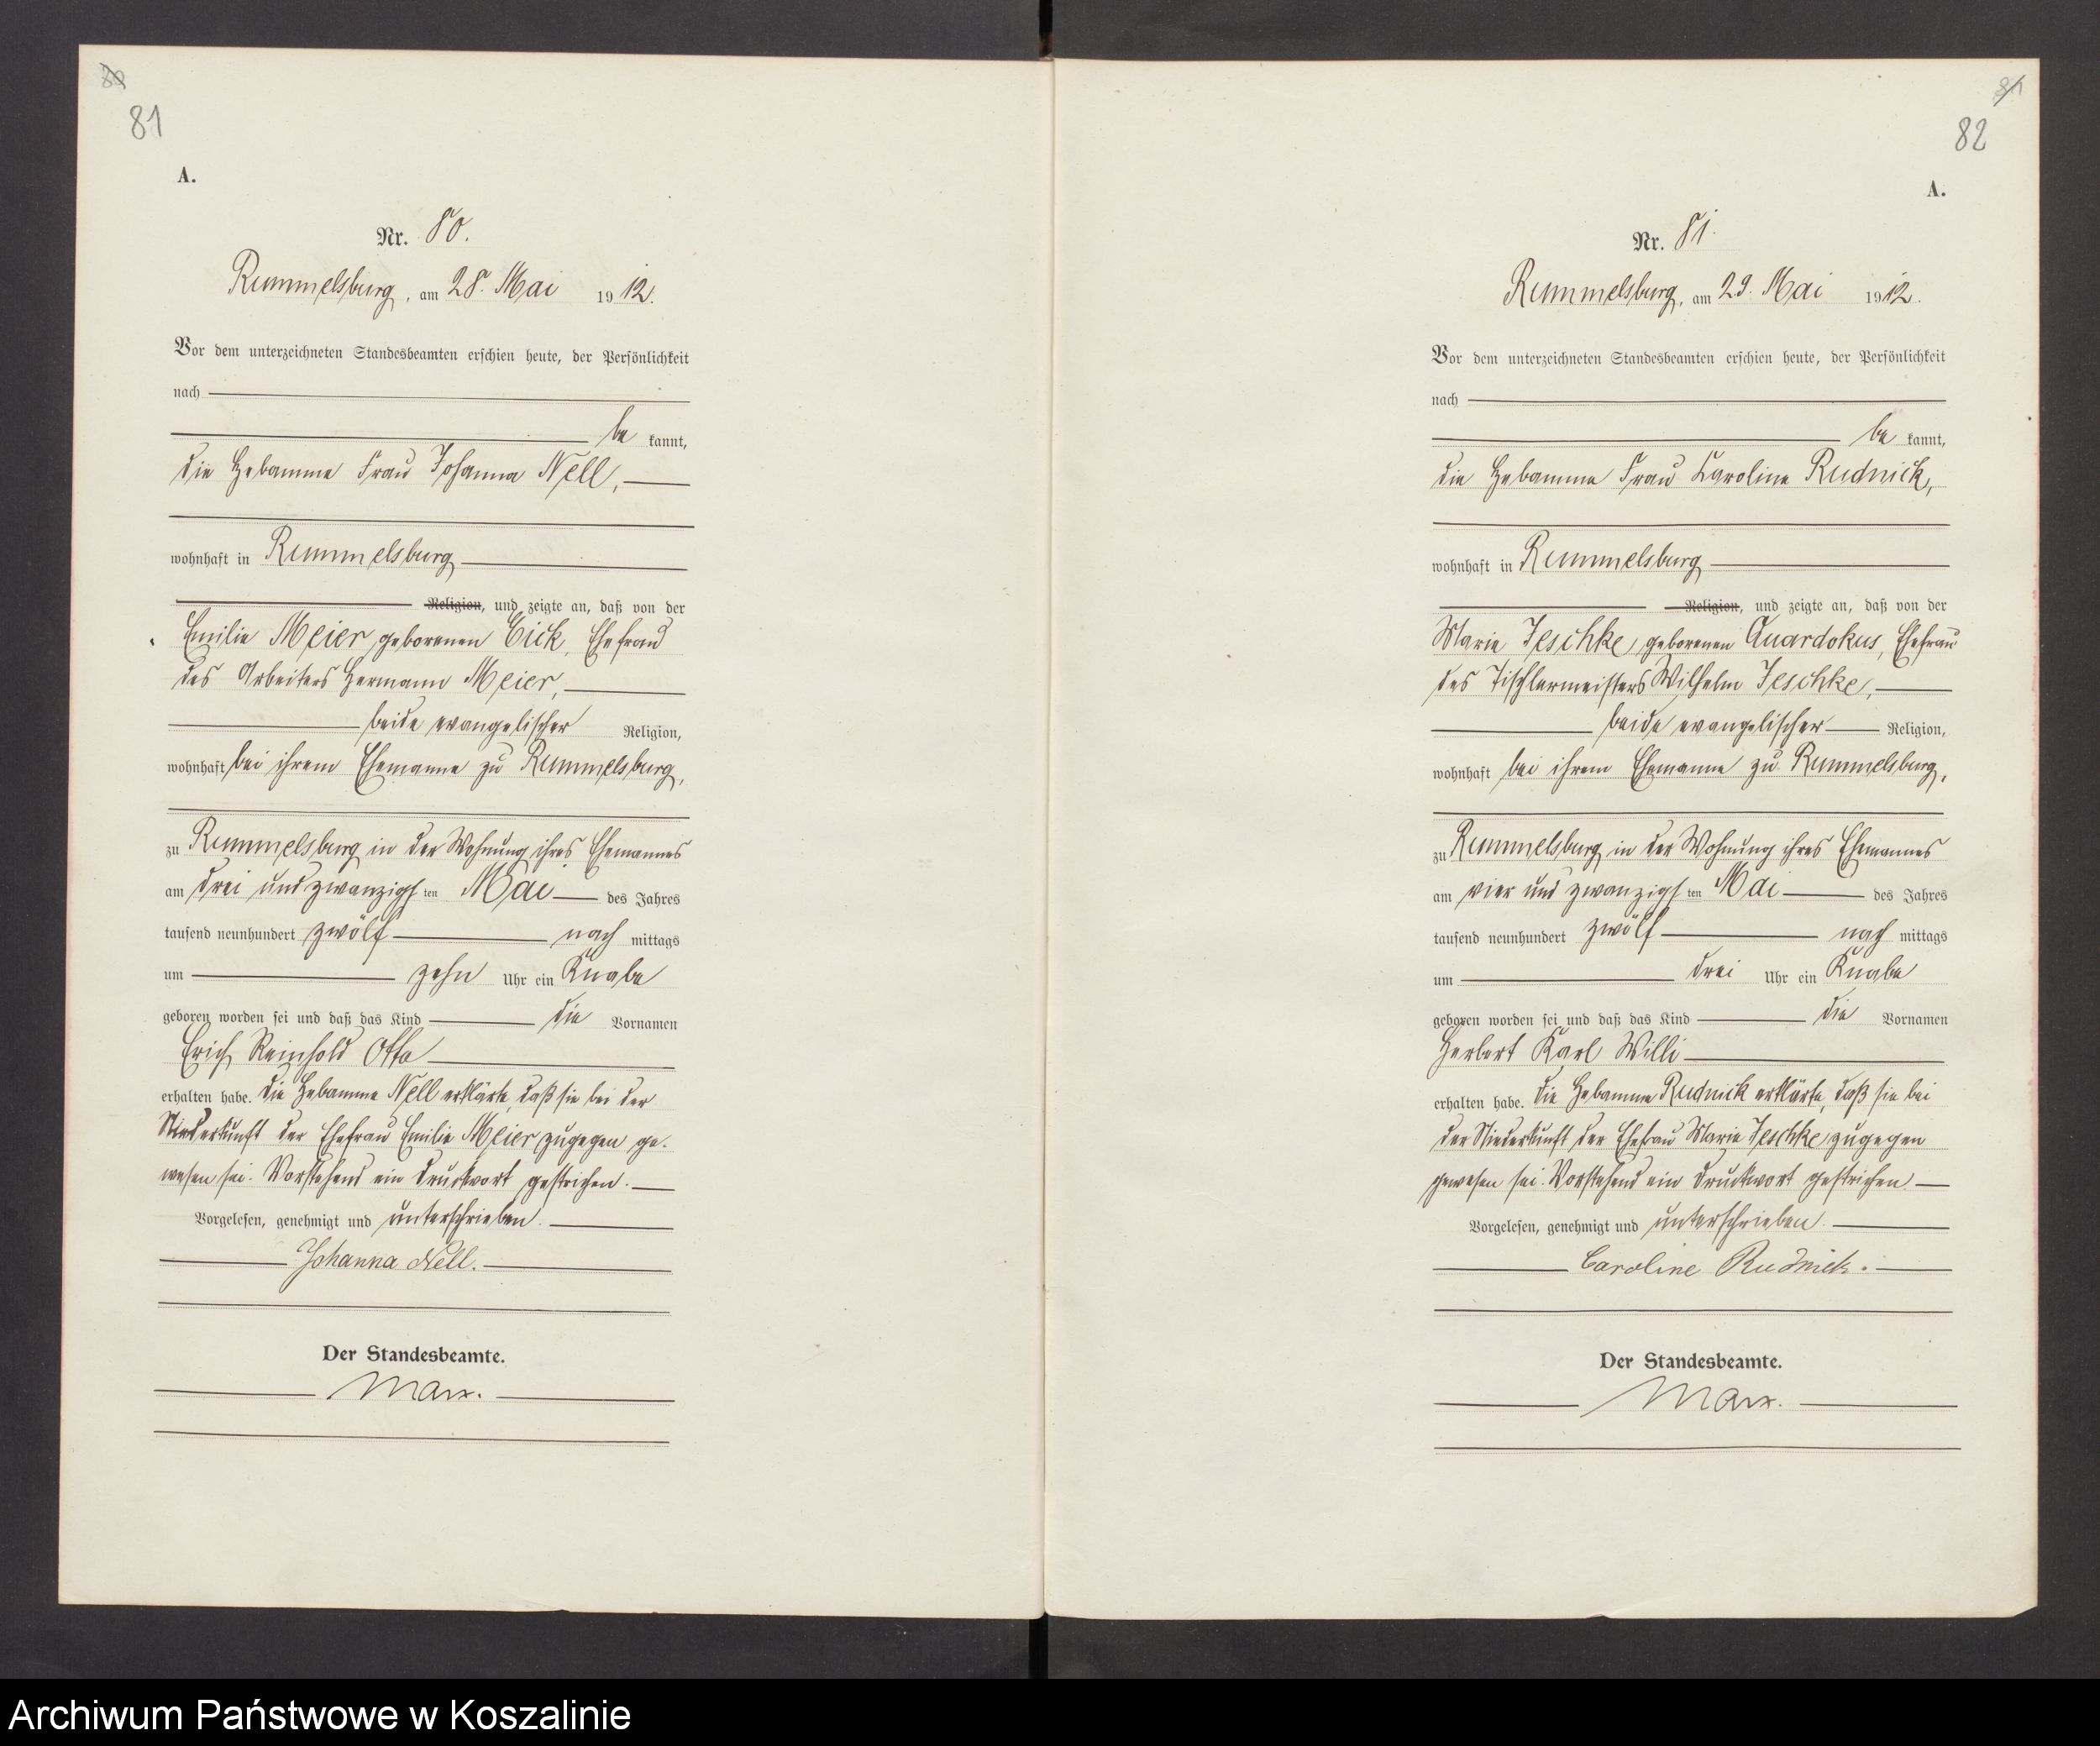 81
A.
Nr. 80.
Rummelsburg, am 28. Mai 1912.
Vor dem unterzeichneten Standesbeamten erschien heute, der Persönlichkeit
nach
be kannt,
die Hebamme Frau Johanna Nell,
wohnhaft in Rummelsburg
Religion, und zeigte an, daß von der
Emilie Meier geborenen Eick, Ehefrau
des Arbeiters Hermann Meier,
beide evangelischer Religion,
wohnhaft bei ihrem Ehemanne zu Rummelsburg,
zu Rummelsburg in der Wohnung ihres Ehemannes
am drei und zwanzigsten Mai des Jahres
tausend neunhundert zwölf nach mittags
um zehn Uhr ein Knabe
geboren worden sei und daß das Kind die Vornamen
Erich Reinhold Otto
erhalten habe. Die Hebamme Nell erklärte, daß sie bei der
Niederkunft der Ehefrau Emilie Meier zugegen ge-
wesen sei. Vorstehend ein Druckwort gestrichen.
Vorgelesen, genehmigt und unterschrieben.
Johanna Nell.
Der Standesbeamte.
Marx.
81
82
A.
Nr. 81.
Rummelsburg, am 29. Mai 1912.
Vor dem unterzeichneten Standesbeamten erschien heute, der Persönlichkeit
nach
be kannt,
die Hebamme Frau Karoline Rudnick,
wohnhaft in Rummelsburg
Religion, und zeigte an, daß von der
Marie Jeschke, geborenen Quardokus, Ehefrau
des Tischlermeisters Wilhelm Jeschke,
beide evangelischer Religion,
wohnhaft bei ihrem Ehemanne zu Rummelsburg,
zu Rummelsburg in der Wohnung ihres Ehemannes
am vier und zwanzigsten Mai des Jahres
tausend neunhundert zwölf nach mittags
um drei Uhr ein Knabe
geboren worden sei und daß das Kind die Vornamen
Herbert Karl Willi
erhalten habe. Die Hebamme Rudnick erklärte, daß sie bei
der Niederkunft der Ehefrau Marie Jeschke zugegen
gewesen sei. Vorstehend ein Druckwort gestrichen.
Vorgelesen, genehmigt und unterschrieben.
Caroline Rudnick.
Der Standesbeamte.
Marx.
Archiwum Państwowe w Koszalinie